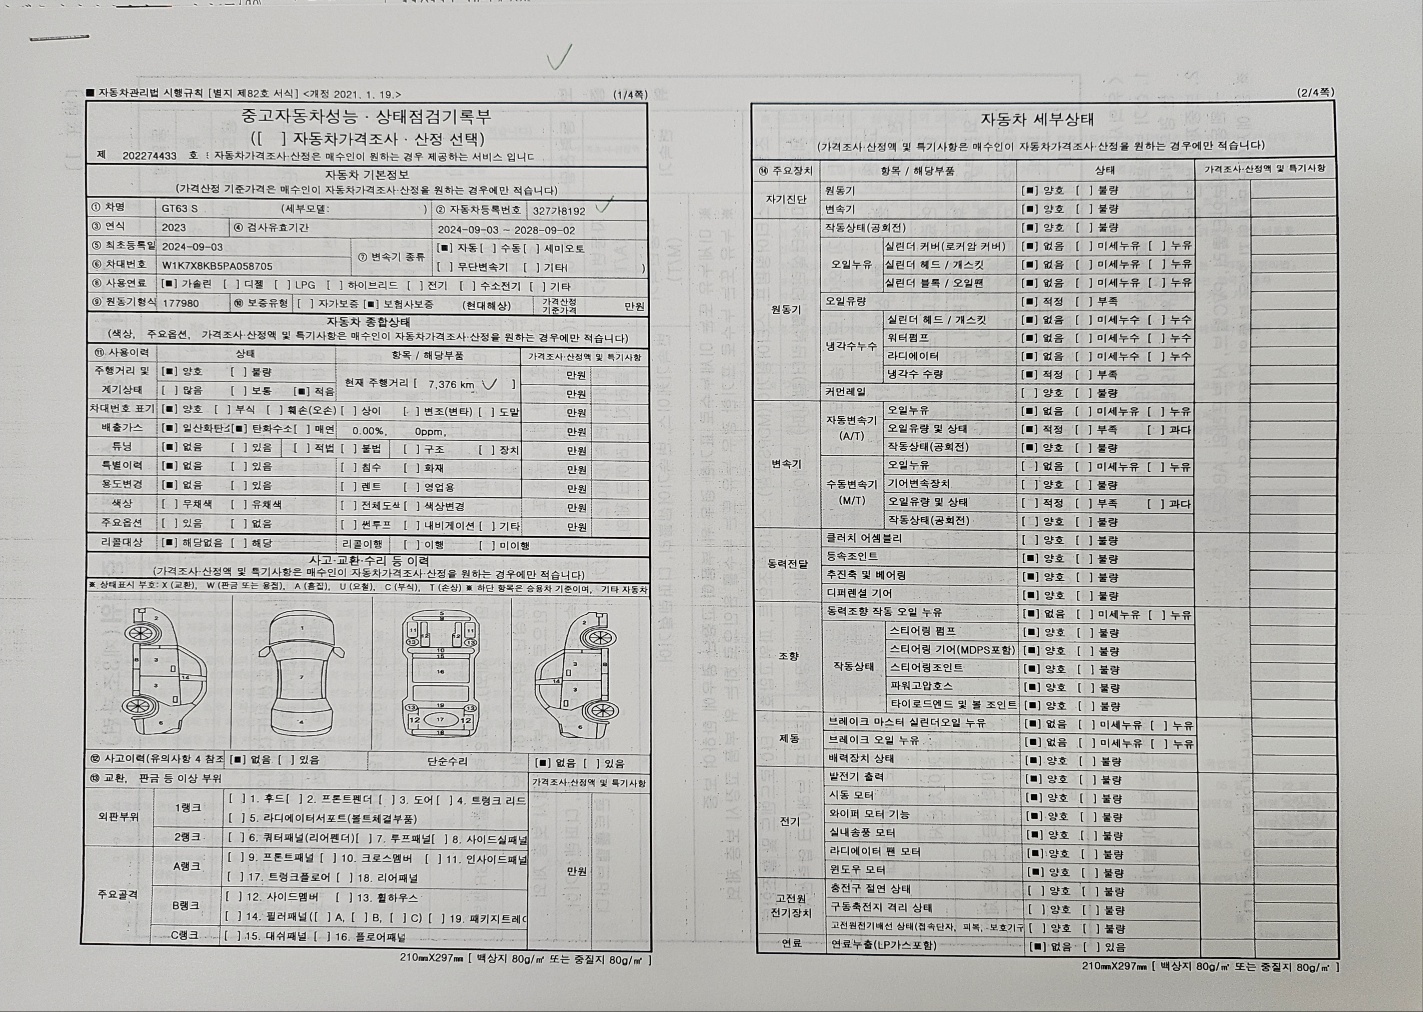 ■ 자동차관리법 시행규칙 [별지 제82호 서식] <개정 2021. 1. 19.> (1/4쪽)
중고자동차성능 · 상태점검기록부
([ ] 자동차가격조사 · 산정 선택)
제 202274433 호 : 자동차가격조사·산정은 매수인이 원하는 경우 제공하는 서비스 입니다
자동차 기본정보
(가격산정 기준가격은 매수인이 자동차가격조사·산정을 원하는 경우에만 적습니다)
① 차명 GT63 S (세부모델: ) ② 자동차등록번호 327가8192
③ 연식 2023 ④ 검사유효기간 2024-09-03 ~ 2028-09-02
⑤ 최초등록일 2024-09-03 ⑦ 변속기 종류 [■] 자동 [ ] 수동 [ ] 세미오토
⑥ 차대번호 W1K7X8KB5PA058705 [ ] 무단변속기 [ ] 기타( )
⑧ 사용연료 [■] 가솔린 [ ] 디젤 [ ] LPG [ ] 하이브리드 [ ] 전기 [ ] 수소전기 [ ] 기타
⑨ 원동기형식 177980 ⑩ 보증유형 [ ] 자가보증 [■] 보험사보증 (현대해상) 가격산정 기준가격 만원
자동차 종합상태
(색상, 주요옵션, 가격조사·산정액 및 특기사항은 매수인이 자동차가격조사·산정을 원하는 경우에만 적습니다)
⑪ 사용이력 상태 항목 / 해당부품 가격조사·산정액 및 특기사항
주행거리 및 [■] 양호 [ ] 불량 현재 주행거리 [ 7,376 km ] 만원
계기상태 [ ] 많음 [ ] 보통 [■] 적음 만원
차대번호 표기 [■] 양호 [ ] 부식 [ ] 훼손(오손) [ ] 상이 [ ] 변조(변타) [ ] 도말 만원
배출가스 [■] 일산화탄소 [■] 탄화수소 [ ] 매연 0.00%, 0ppm, 만원
튜닝 [■] 없음 [ ] 있음 [ ] 적법 [ ] 불법 [ ] 구조 [ ] 장치 만원
특별이력 [■] 없음 [ ] 있음 [ ] 침수 [ ] 화재 만원
용도변경 [■] 없음 [ ] 있음 [ ] 렌트 [ ] 영업용 만원
색상 [ ] 무채색 [ ] 유채색 [ ] 전체도색 [ ] 색상변경 만원
주요옵션 [ ] 있음 [ ] 없음 [ ] 썬루프 [ ] 내비게이션 [ ] 기타 만원
리콜대상 [■] 해당없음 [ ] 해당 리콜이행 [ ] 이행 [ ] 미이행
사고·교환·수리 등 이력
(가격조사·산정액 및 특기사항은 매수인이 자동차가격조사·산정을 원하는 경우에만 적습니다)
※ 상태표시 부호: X (교환), W (판금 또는 용접), A (흠집), U (요철), C (부식), T (손상) ※ 하단 항목은 승용차 기준이며, 기타 자동차
⑫ 사고이력(유의사항 4 참조 [■] 없음 [ ] 있음 단순수리 [■] 없음 [ ] 있음
⑬ 교환, 판금 등 이상 부위 가격조사·산정액 및 특기사항
외판부위 1랭크 [ ] 1. 후드 [ ] 2. 프론트펜더 [ ] 3. 도어 [ ] 4. 트렁크 리드
[ ] 5. 라디에이터서포트(볼트체결부품)
2랭크 [ ] 6. 쿼터패널(리어펜더) [ ] 7. 루프패널 [ ] 8. 사이드실패널
주요골격 A랭크 [ ] 9. 프론트패널 [ ] 10. 크로스멤버 [ ] 11. 인사이드패널 만원
[ ] 17. 트렁크플로어 [ ] 18. 리어패널
B랭크 [ ] 12. 사이드멤버 [ ] 13. 휠하우스
[ ] 14. 필러패널([ ] A, [ ] B, [ ] C) [ ] 19. 패키지트레이
C랭크 [ ] 15. 대쉬패널 [ ] 16. 플로어패널
210㎜X297㎜ [ 백상지 80g/㎡ 또는 중질지 80g/㎡ ]
(2/4쪽)
자동차 세부상태
(가격조사·산정액 및 특기사항은 매수인이 자동차가격조사·산정을 원하는 경우에만 적습니다)
⑭ 주요장치 항목 / 해당부품 상태 가격조사·산정액 및 특기사항
자기진단 원동기 [■] 양호 [ ] 불량
변속기 [■] 양호 [ ] 불량
원동기 작동상태(공회전) [■] 양호 [ ] 불량
오일누유 실린더 커버(로커암 커버) [■] 없음 [ ] 미세누유 [ ] 누유
실린더 헤드 / 개스킷 [■] 없음 [ ] 미세누유 [ ] 누유
실린더 블록 / 오일팬 [■] 없음 [ ] 미세누유 [ ] 누유
오일유량 [■] 적정 [ ] 부족
냉각수누수 실린더 헤드 / 개스킷 [■] 없음 [ ] 미세누수 [ ] 누수
워터펌프 [■] 없음 [ ] 미세누수 [ ] 누수
라디에이터 [■] 없음 [ ] 미세누수 [ ] 누수
냉각수 수량 [■] 적정 [ ] 부족
커먼레일 [ ] 양호 [ ] 불량
변속기 자동변속기 (A/T) 오일누유 [■] 없음 [ ] 미세누유 [ ] 누유
오일유량 및 상태 [■] 적정 [ ] 부족 [ ] 과다
작동상태(공회전) [■] 양호 [ ] 불량
수동변속기 (M/T) 오일누유 [ ] 없음 [ ] 미세누유 [ ] 누유
기어변속장치 [ ] 양호 [ ] 불량
오일유량 및 상태 [ ] 적정 [ ] 부족 [ ] 과다
작동상태(공회전) [ ] 양호 [ ] 불량
동력전달 클러치 어셈블리 [ ] 양호 [ ] 불량
등속조인트 [■] 양호 [ ] 불량
추진축 및 베어링 [■] 양호 [ ] 불량
디퍼렌셜 기어 [■] 양호 [ ] 불량
조향 동력조향 작동 오일 누유 [■] 없음 [ ] 미세누유 [ ] 누유
작동상태 스티어링 펌프 [■] 양호 [ ] 불량
스티어링 기어(MDPS포함) [■] 양호 [ ] 불량
스티어링조인트 [■] 양호 [ ] 불량
파워고압호스 [■] 양호 [ ] 불량
타이로드엔드 및 볼 조인트 [■] 양호 [ ] 불량
제동 브레이크 마스터 실린더오일 누유 [■] 없음 [ ] 미세누유 [ ] 누유
브레이크 오일 누유 [■] 없음 [ ] 미세누유 [ ] 누유
배력장치 상태 [■] 양호 [ ] 불량
전기 발전기 출력 [■] 양호 [ ] 불량
시동 모터 [■] 양호 [ ] 불량
와이퍼 모터 기능 [■] 양호 [ ] 불량
실내송풍 모터 [■] 양호 [ ] 불량
라디에이터 팬 모터 [■] 양호 [ ] 불량
윈도우 모터 [■] 양호 [ ] 불량
고전원 전기장치 충전구 절연 상태 [ ] 양호 [ ] 불량
구동축전지 격리 상태 [ ] 양호 [ ] 불량
고전원전기배선 상태(접속단자, 피복, 보호기구 [ ] 양호 [ ] 불량
연료 연료누출(LP가스포함) [■] 없음 [ ] 있음
210㎜X297㎜ [ 백상지 80g/㎡ 또는 중질지 80g/㎡ ]